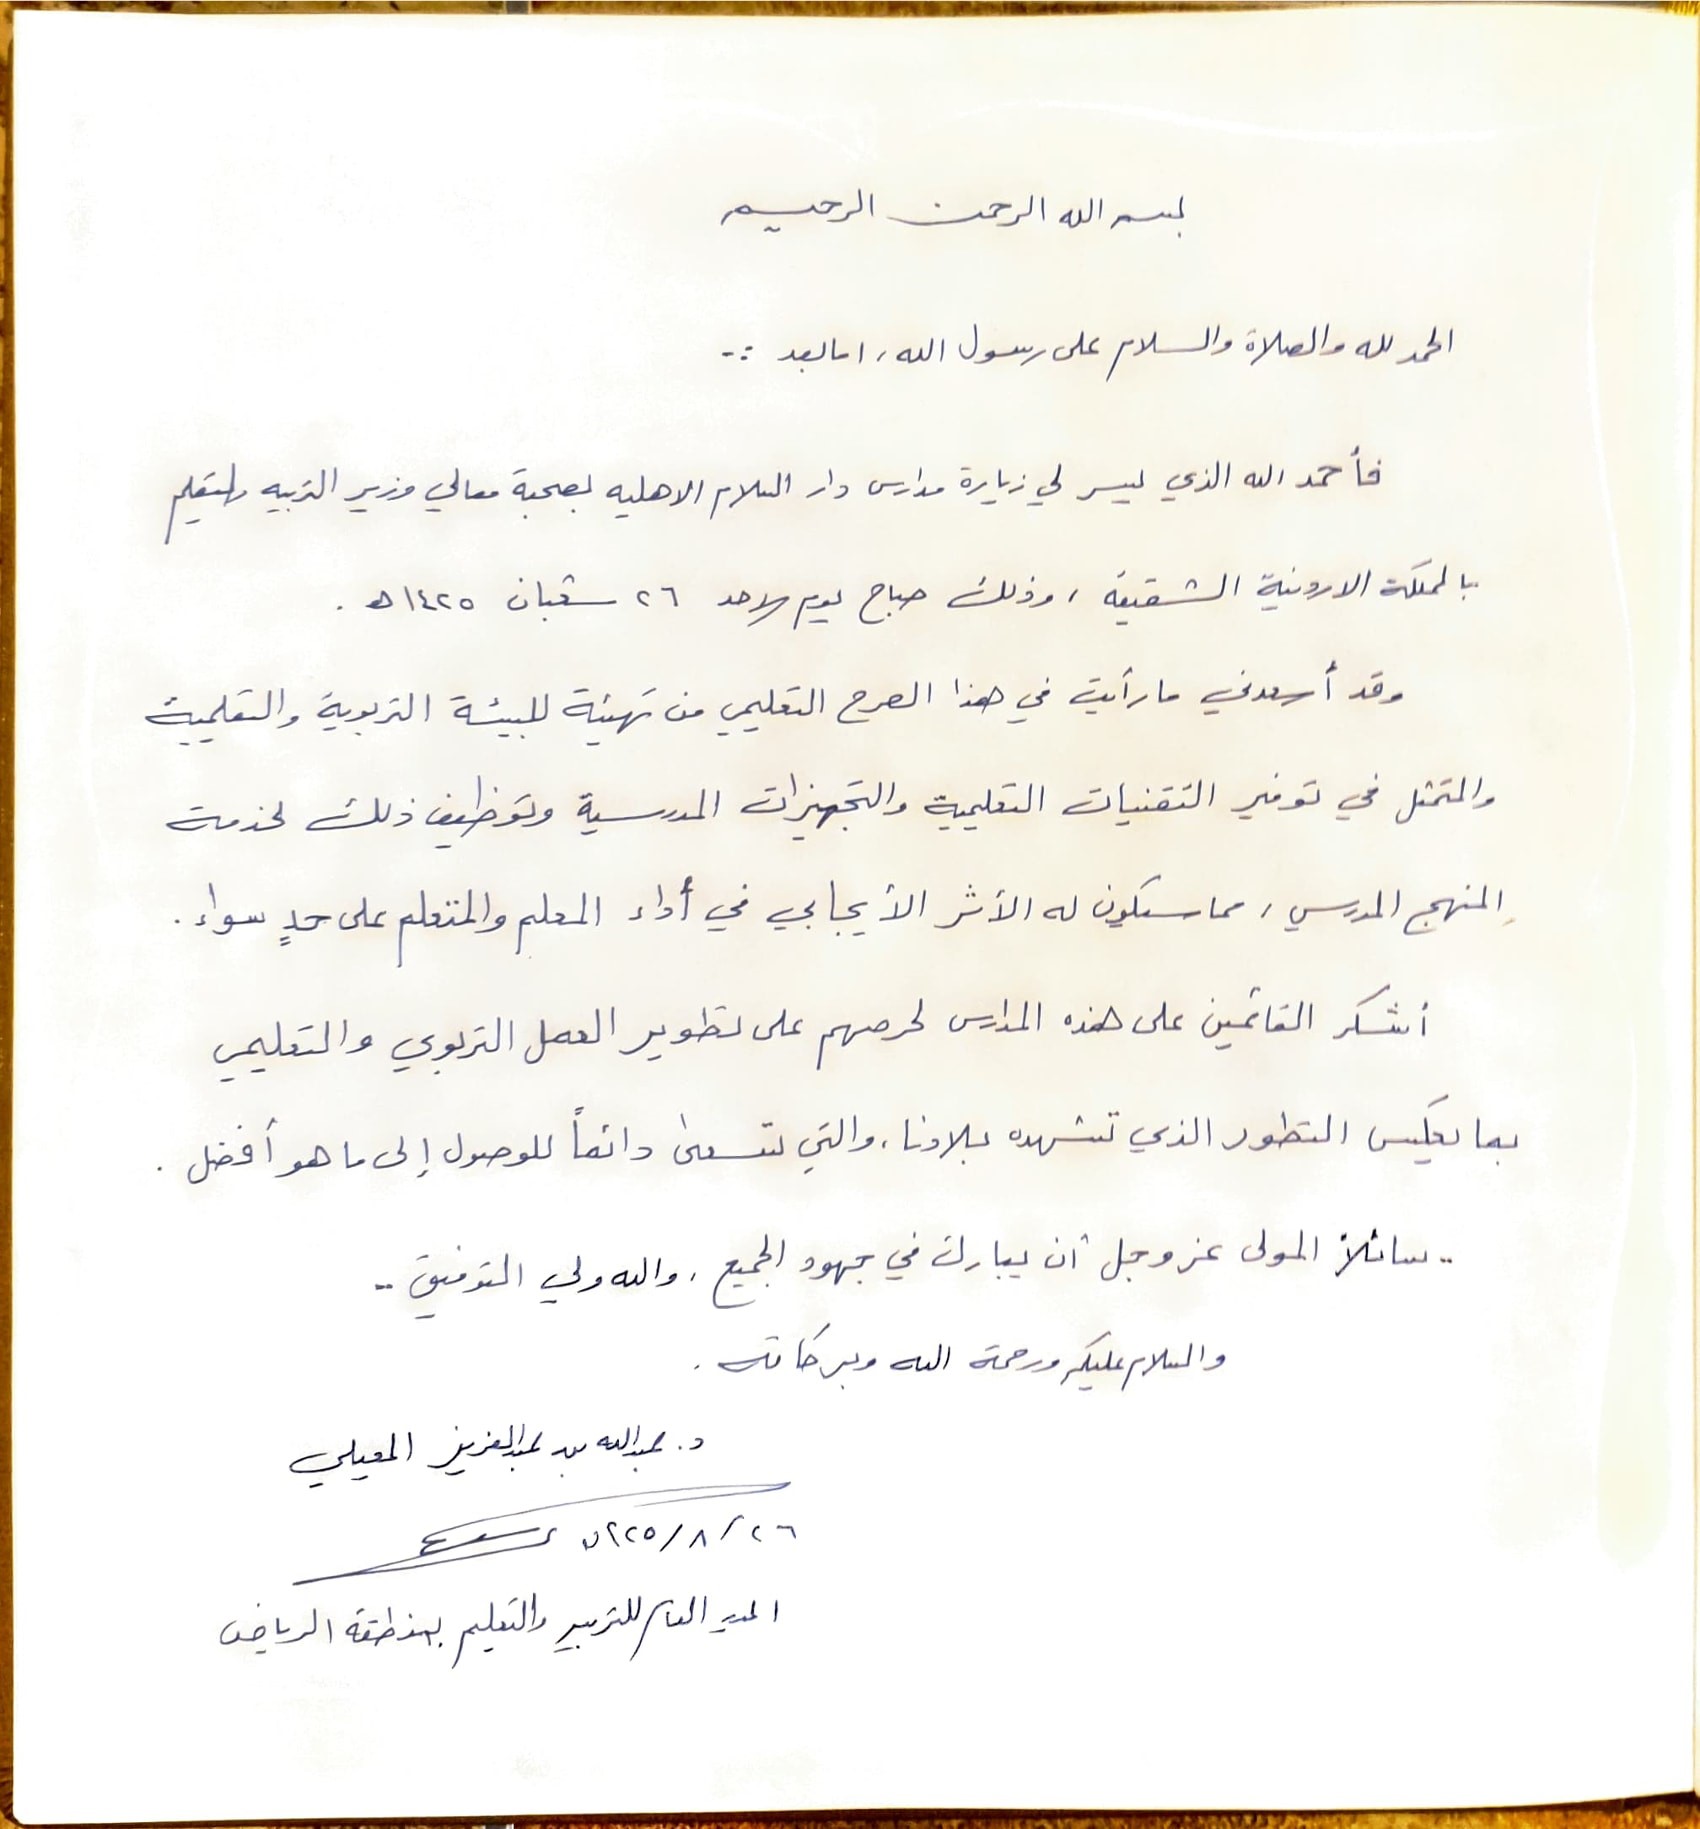 بسم الله الرحمن الرحيم
الحمد لله والصلاة والسلام على رسول الله، اما بعد :-
فأحمد الله الذي يسر لي زيارة مدارس دار السلام الاهليه بصحبة معالي وزير التربيه والتعليم
بالمملكة الاردنية الشقيقة ، وذلك صباح يوم الاحد ٢٦ شعبان ١٤٢٥هـ .
وقد أسعدني ما رأيت في هذا الصرح التعليمي من تهيئة للبيئة التربوية والتعليمية
والمتمثل في توفير التقنيات التعليمية والتجهيزات المدرسية وتوظيف ذلك لخدمة
المنهج المدرسي ، مما سيكون له الأثر الأيجابي في أداء المعلم والمتعلم على حدٍ سواء .
أشكر القائمين على هذه المدارس لحرصهم على تطوير العمل التربوي والتعليمي
بما يعكس التطور الذي تشهده بلادنا ، والتي تسعى دائماً للوصول إلى ما هو أفضل .
.. سائلاً المولى عز وجل أن يبارك في جهود الجميع ، والله ولي التوفيق ..
والسلام عليكم ورحمة الله وبركاته .
د. عبدالله بن عبدالعزيز المعيلي
٢٦/٨/
المدير العام للتربية والتعليم بمنطقة الرياض